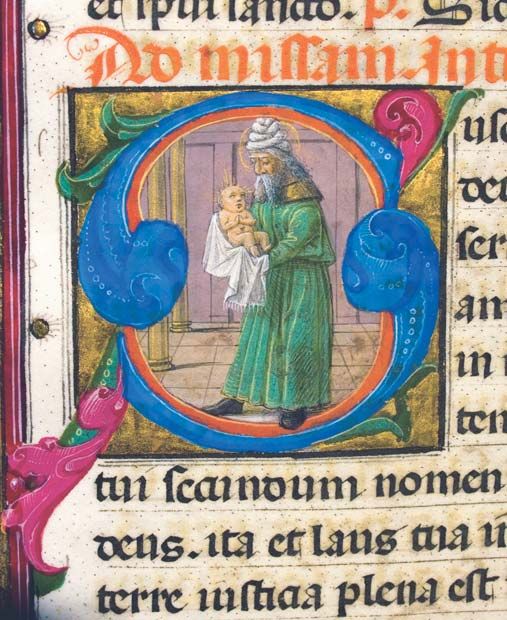 et spui sancto. p. Sic
Ad missam. Int
S usc
deu
ser
am
in
tem
tui secundum nomen
deus. ita et laus tua in
terre iusticia plena est